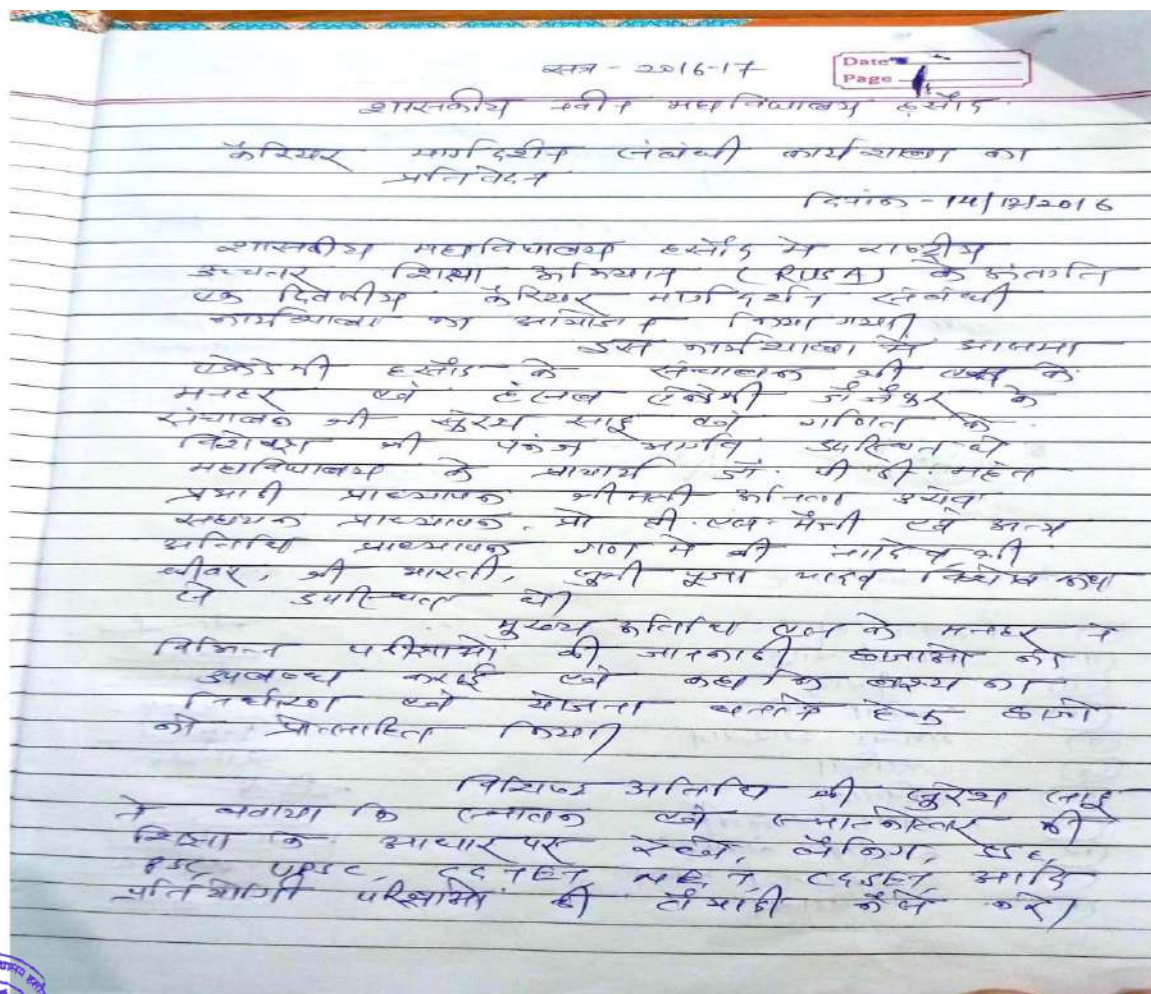 सत्र - 2016-17
Date
Page 1
शासकीय नवीन महाविद्यालय हसौद
कैरियर मार्गदर्शन संबंधी कार्यशाला का
प्रतिवेदन
दिनांक - 14/12/2016
शासकीय महाविद्यालय हसौद मे राष्ट्रीय
उच्चतर शिक्षा अभियान (RUSA) के अंतर्गत
एक दिवसीय कैरियर मार्गदर्शन संबंधी
कार्यशाला का आयोजन किया गया।
इस कार्यशाला में आजमा
एकेडेमी हसौद के संचालक श्री एल के
मनहर एवं एकेडेमी जैजैपुर के
संचालक श्री सुरेश साहू एवं गणित के
विशेषज्ञ श्री पंकज भार्गव उपस्थित थे
महाविद्यालय के प्राचार्य डॉ. पी डी. महंत
प्रभारी प्राध्यापक श्रीमती अनिता
सहायक प्राध्यापक. प्रो बी. एल. मैत्री एवं अन्य
अतिथि प्राध्यापक गण मे श्री श्री
धीवर, श्री भारती, सुश्री पूजा यादव विशेष रूप
से उपस्थित थे।
मुख्य अतिथि एल के मनहर ने
विभिन्न परीक्षाओं की जानकारी छात्राओ को
उपलब्ध कराई एवं कहा कि लक्ष्य का
निर्धारण एवं योजना बनाने हेतु छात्रो
को प्रोत्साहित किया।
विशिष्ट अतिथि श्री सुरेश साहू
ने बताया कि स्नातक एवं स्नातकोत्तर की
शिक्षा के आधार पर रेल्वे, बैंकिग, SSC,
PSC, UPSC, CGTET, NET, CGSET, आदि
प्रतियोगी परिक्षाओ की तैयारी कैसे करे।